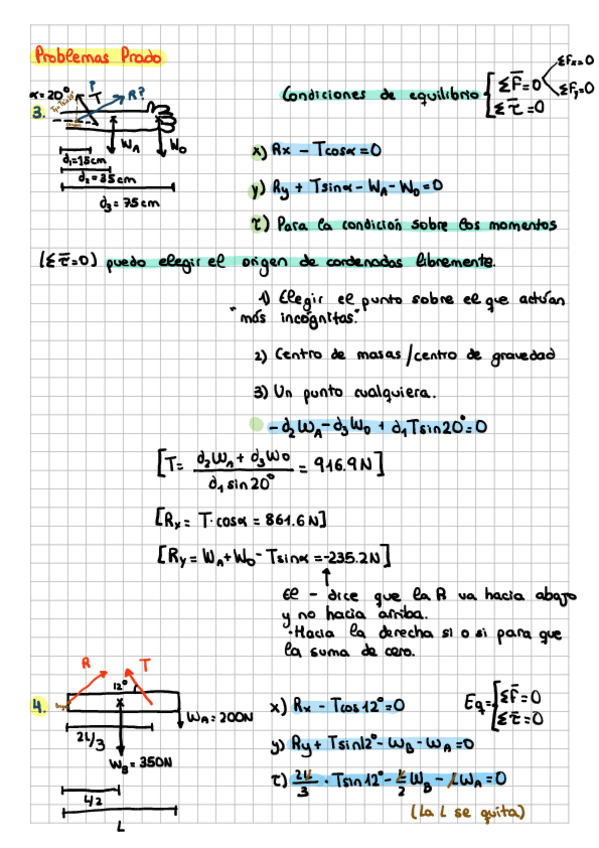 Problemas Prado
Condiciones de equilibrio { ΣF̅=0 ΣFx=0 ΣFy=0
Στ̅=0
α=20°
T
R?
3.
W_A
W_D
d₁=15cm
d₂=35cm
d₃=75cm
x) Rx - Tcosα=0
y) Ry + Tsinα - W_A - W_D=0
τ) Para la condición sobre los momentos
(Στ̅=0) puedo elegir el origen de cordenadas libremente.
1) Elegir el punto sobre el que actúan
"más incógnitas."
2) Centro de masas/centro de gravedad
3) Un punto cualquiera.
-d₂W_A-d₃W_D + d₁Tsin20°=0
[T= d₂W_A + d₃W_D / d₁ sin20° = 916.9N]
[Rx = T·cosα = 861.6N]
[Ry = W_A+W_D-Tsinα=-235.2N]
El - dice que la R va hacia abajo
y no hacia arriba.
·Hacia la derecha si o si para que
la suma de cero.
R
T
12°
4.
W_A=200N
2L/3
W_B=350N
L/2
L
x) Rx - Tcos12°=0
Eq={ ΣF̅=0
Στ̅=0
y) Ry+ Tsin12°-W_B-W_A=0
τ) 2L/3 · Tsin12°- L/2 W_B - LW_A=0
(La L se quita)